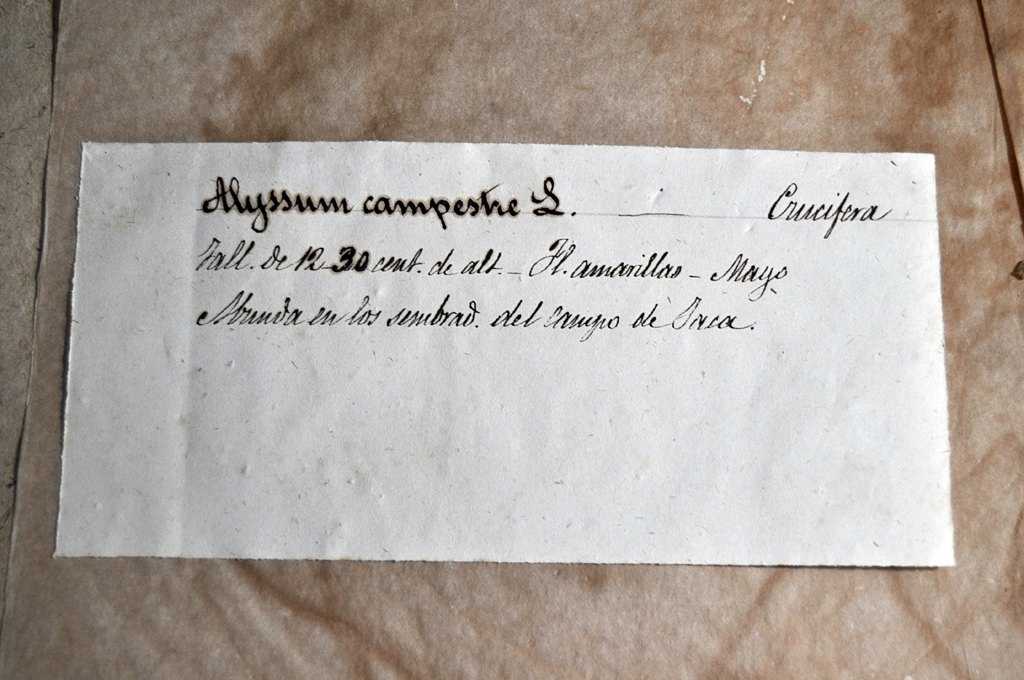 Alyssum campestre L. — Crucifera
Tall. de 12 30 cent. de alt. – Fl. amarillas – Mayo
Abunda en los sembrad. del campo de Jaca.